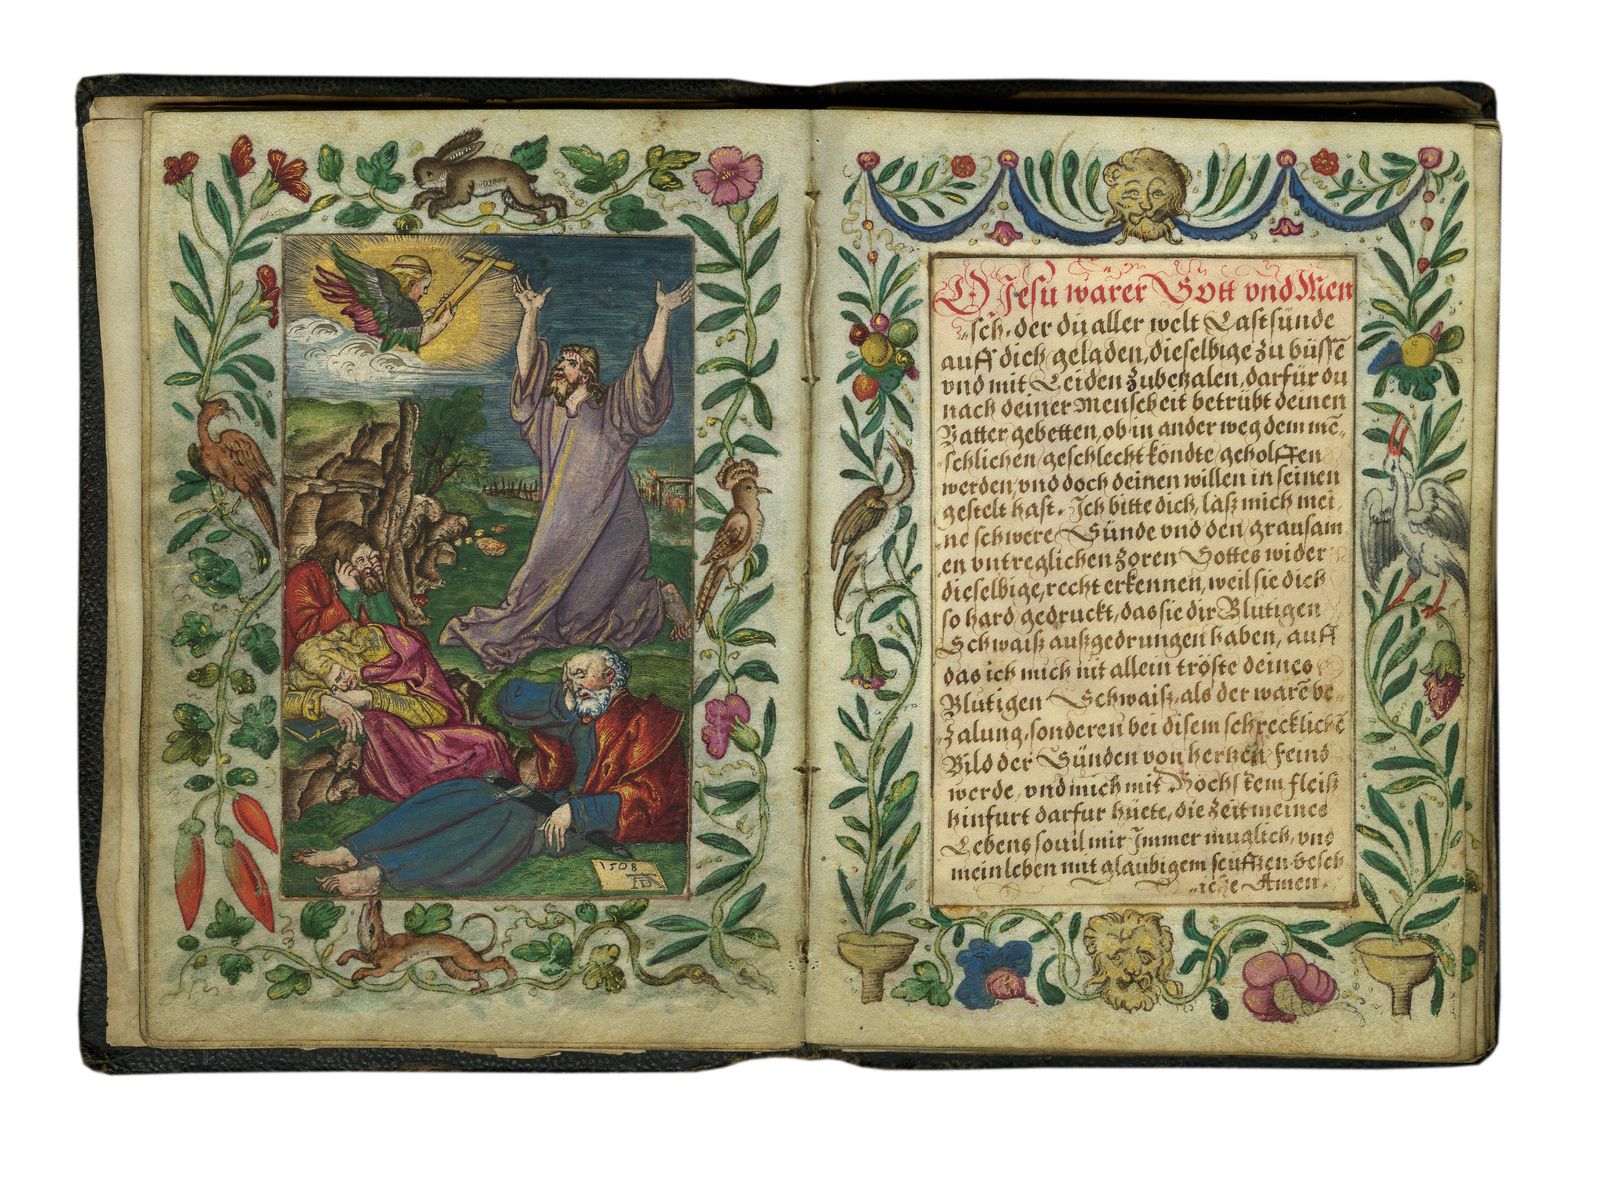 1508
AD
O Jesu warer Gott vnd Men
sch, der du aller welt Last sünde
auff dich geladen, dieselbige zu büssē
vnd mit Leiden zubezalen, darfür du
nach deiner Menscheit betrübt deinen
Vatter gebetten, ob in ander weg dem mē-
schlichen geschlecht köndte geholffen
werden, vnd doch deinen willen in seinen
gestelt hast. Ich bitte dich, laß mich mei-
ne schwere Sünde vnd den grausam
en vntreglichen zoren Gottes wider
dieselbige, recht erkennen, weil sie dich
so hard gedruckt, das sie dir Blutigen
Schwaiß außgedrungen haben, auff
das ich mich nit allein tröste deines
Blutigen Schwaiß, als der warē be-
zalung, sonderen bei disem schrecklichē
Bild der Sünden von hertzen feind
werde, vnd mich mit Hochstem fleiß
hinfurt darfur hüete, die zeit meines
Lebens souil mir Immer müglich, vnd
mein leben mit glaubigem seufftzen besch-
Amen.